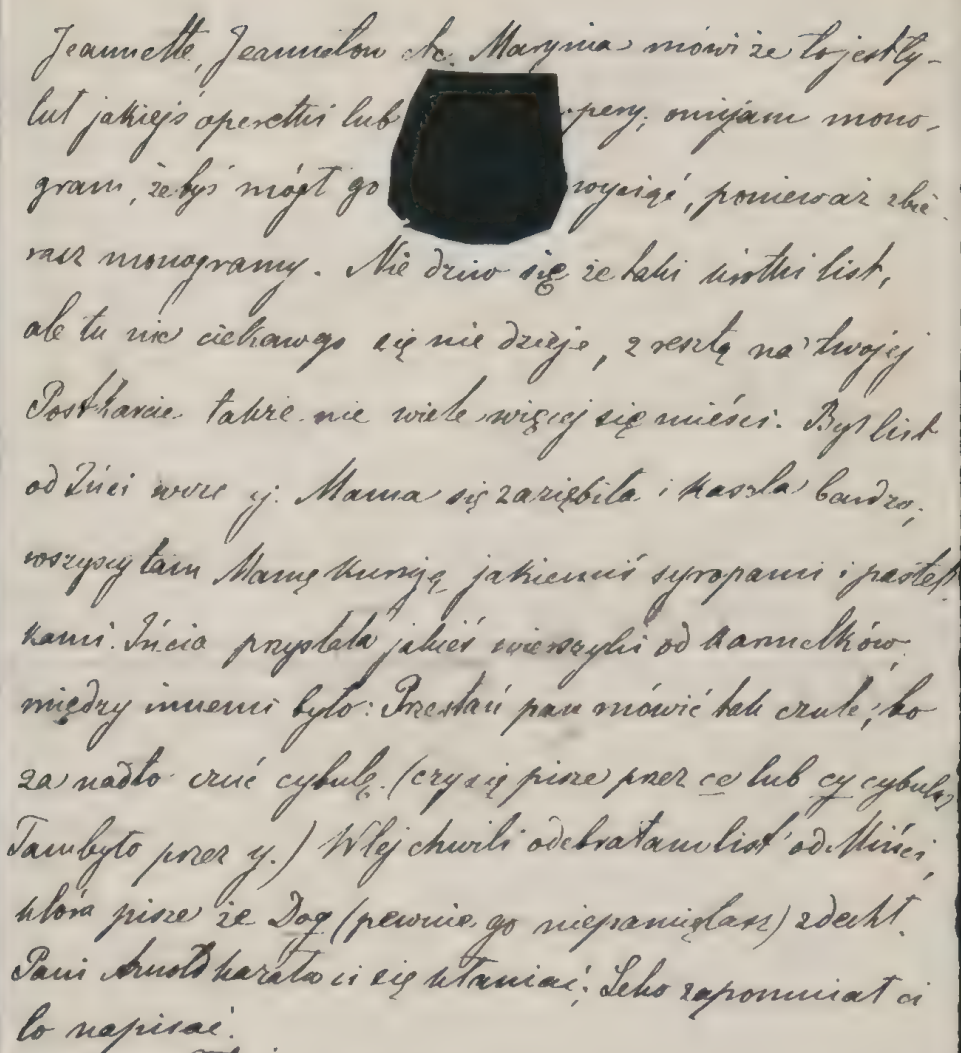 Jeannette, Jeanneton etc. Marynia mówi że to jest ty-
tuł jakiejś operetki lub opery; omijam mono-
gram, żebyś mógł go wyciąć, ponieważ zbie-
rasz monogramy. Nie dziw się że taki krótki list,
ale tu nic ciekawgo się nie dzieje, z resztą na twojej
Postkarcie także nie wiele więcej się mieści. Był list
od Zuci Mama się zaziębiła i kaszla bardzo,
wszyscy tam Mamę kurują jakiemiś syropami i pastel-
kami. Zucia przysłała jakieś wierszyki od karmelków,
między innemi było: Przestań pan mówić tak czule, bo
za nadto czuć cybulę. (czy się pisze przez ce lub cy cybula,
Tam było przez y.) W tej chwili odebrałam list od Minci,
która pisze że Dog (pewnie go niepamiętasz) zdechł.
Pani Arnold kazała ci się kłaniać; Leho zapomniał ci
to napisać.